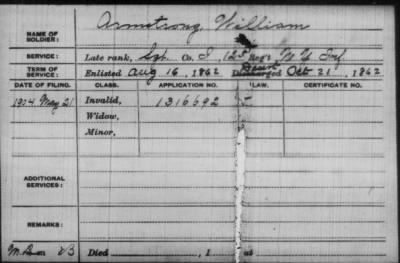 Armstrong, William
NAME OF SOLDIER:
SERVICE: Late rank, Sgt Co. I, 125 Reg't N.Y. Inf.
TERM OF SERVICE: Enlisted Aug 16, 1862 Discharged Desert Oct 21, 1862
DATE OF FILING. CLASS. APPLICATION NO. LAW. CERTIFICATE NO.
1904 May 21 Invalid, 1316692
Widow,
Minor,
ADDITIONAL SERVICES:
REMARKS:
Died , 1 at